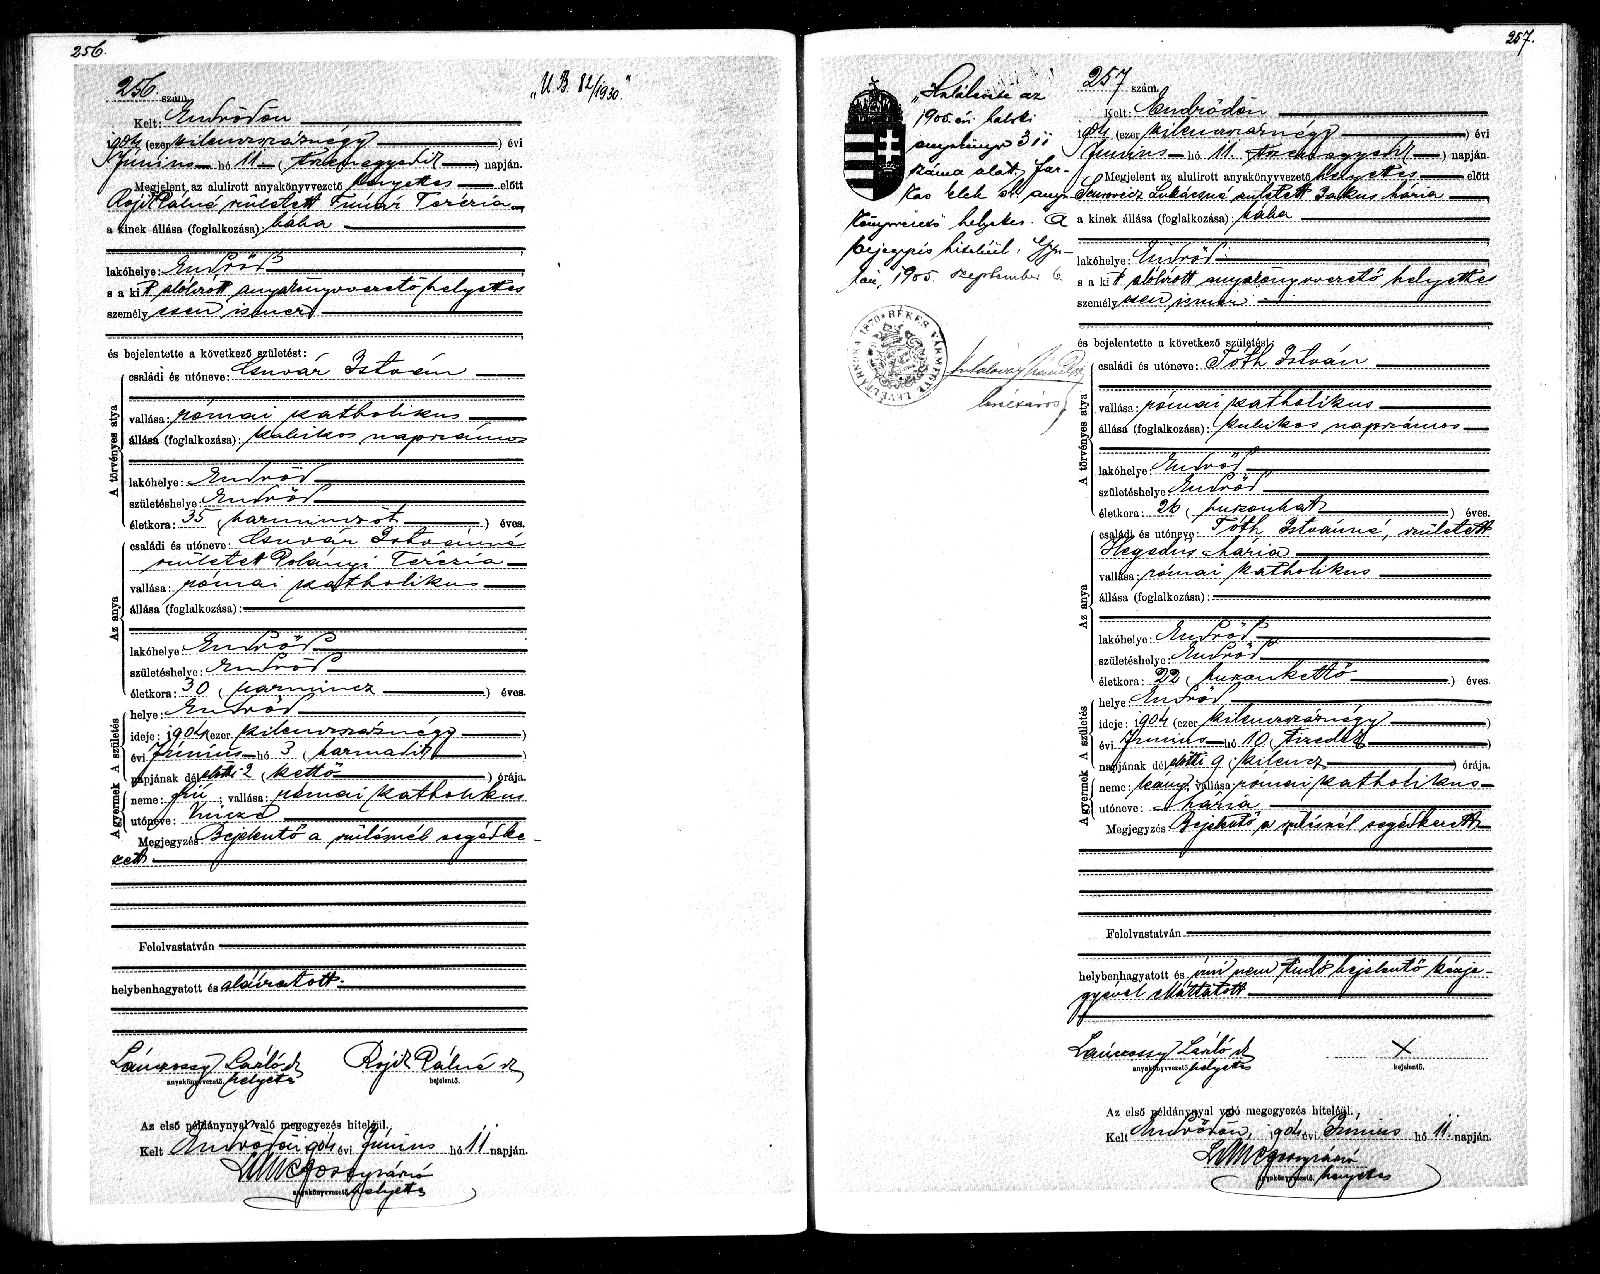 256.
256. szám.
„U. B. 82/1930."
Kelt: Endrődön
1904 (ezer kilenczszáznégy) évi
Június hó 11 (tizenegyedik) napján.
Megjelent az alulirott anyakönyvvezető helyettes előtt
Rojik Pálné született Teréria
a kinek állása (foglalkozása): bába
lakóhelye: Endrőd
s a kit alólirott anyakönyvvezető helyettes
személyesen ismer
és bejelentette a következő születést:
A törvényes atya
családi és utóneve: Csuvár István
vallása: római katholikus
állása (foglalkozása): kubikos napszámos
lakóhelye: Endrőd
születéshelye: Endrőd
életkora: 35 (harminczöt) éves.
Az anya
családi és utóneve: Csuvár Istvánné
született Polányi Teréria
vallása: római katholikus
állása (foglalkozása):
lakóhelye: Endrőd
születéshelye: Endrőd
életkora: 30 (harmincz) éves.
A születés
helye: Endrőd
ideje: 1904 (ezer kilenczszáznégy)
évi Június hó 3 (harmadik)
napjának délelőtti 2 (kettő) órája.
A gyermek
neme: fiú; vallása: római katholikus
utóneve: Vincze
Megjegyzés Bejelentő a szülésnél segédke-
zett.
Felolvastatván
helybenhagyatott és aláíratott.
László Rojik Pálné
anyakönyvvezető. helyettes bejelentő.
Az első példánynyal való megegyezés hiteléül.
Kelt Endrődön 1904 évi Június hó 11 napján.
anyakönyvvezető. helyettes
257.
257 szám.
„Halálesete az
1905. évi halotti
anyakönyv 311
száma alatt. Far-
kas Elek sk. any-
könyvvezető helyettes. A
bejegyzés hiteléül: Gyu-
lán, 1905. szeptember 6.
BÉKES VÁRMEGYE LEVÉLTÁRNOKA 1870
levéltárnok
Kelt: Endrődön
1904 (ezer kilenczszáznégy) évi
Június hó 11 (tizenegyedik) napján.
Megjelent az alulirott anyakönyvvezető helyettes előtt
Lukácsné született Farkas Mária
a kinek állása (foglalkozása): bába
lakóhelye: Endrőd
s a kit alólirott anyakönyvvezető helyettes
személyesen ismer
és bejelentette a következő születést:
A törvényes atya
családi és utóneve: Tóth István
vallása: római katholikus
állása (foglalkozása): kubikos napszámos
lakóhelye: Endrőd
születéshelye: Endrőd
életkora: 26 (huszonhat) éves.
Az anya
családi és utóneve: Tóth Istvánné, született
Hegedüs Mária
vallása: római katholikus
állása (foglalkozása):
lakóhelye: Endrőd
születéshelye: Endrőd
életkora: 22 (huszonkettő) éves.
A születés
helye: Endrőd
ideje: 1904 (ezer kilenczszáznégy)
évi Június hó 10 (tizedik)
napjának délelőtti 9 (kilencz) órája.
A gyermek
neme: leány; vallása: római katholikus
utóneve: Mária
Megjegyzés Bejelentő a szülésnél segédkezett
Felolvastatván
helybenhagyatott és írni nem tudó bejelentő kézje-
gyével elláttatott
László X
anyakönyvvezető. helyettes bejelentő.
Az első példánynyal való megegyezés hiteléül.
Kelt Endrődön, 1904 évi Június hó 11. napján.
anyakönyvvezető. helyettes